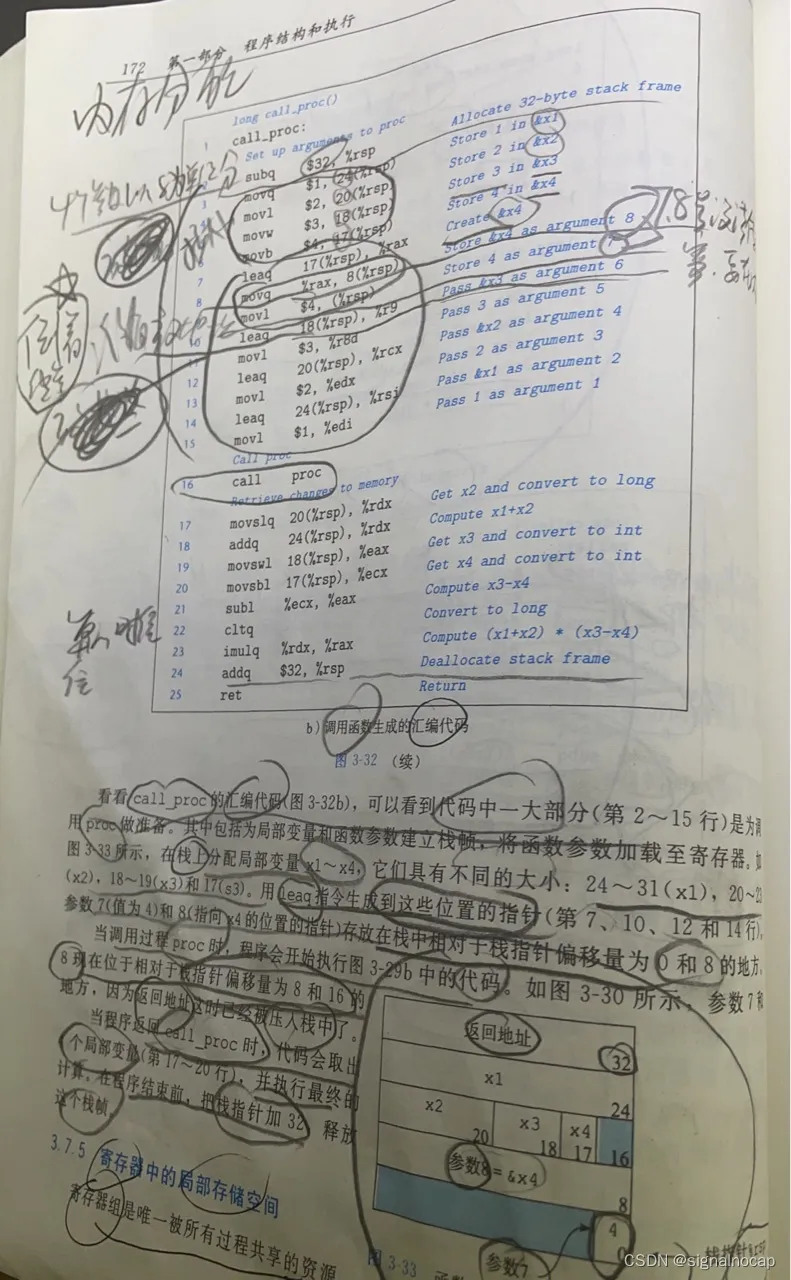 172 第一部分 程序结构和执行
内存分配
long call_proc()
1 call_proc:
Set up arguments to proc
2 subq $32, %rsp Allocate 32-byte stack frame
3 movq $1, 24(%rsp) Store 1 in &x1
4 movl $2, 20(%rsp) Store 2 in &x2
5 movw $3, 18(%rsp) Store 3 in &x3
6 movb $4, 17(%rsp) Store 4 in &x4
7 leaq 17(%rsp), %rax Create &x4
8 movq %rax, 8(%rsp) Store &x4 as argument 8
9 movl $4, (%rsp) Store 4 as argument 7
10 leaq 18(%rsp), %r9 Pass &x3 as argument 6
11 movl $3, %r8d Pass 3 as argument 5
12 leaq 20(%rsp), %rcx Pass &x2 as argument 4
13 movl $2, %edx Pass 2 as argument 3
14 leaq 24(%rsp), %rsi Pass &x1 as argument 2
15 movl $1, %edi Pass 1 as argument 1
Call proc
16 call proc
Retrieve changes to memory
17 movslq 20(%rsp), %rdx Get x2 and convert to long
18 addq 24(%rsp), %rdx Compute x1+x2
19 movswl 18(%rsp), %eax Get x3 and convert to int
20 movsbl 17(%rsp), %ecx Get x4 and convert to int
21 subl %ecx, %eax Compute x3-x4
22 cltq Convert to long
23 imulq %rdx, %rax Compute (x1+x2) * (x3-x4)
24 addq $32, %rsp Deallocate stack frame
25 ret Return
b) 调用函数生成的汇编代码
图 3-32 (续)
看看 call_proc 的汇编代码(图 3-32b), 可以看到代码中一大部分(第 2~15 行)是为调
用 proc 做准备。其中包括为局部变量和函数参数建立栈帧, 将函数参数加载至寄存器。如
图 3-33 所示, 在栈上分配局部变量 x1~x4, 它们具有不同的大小: 24~31(x1), 20~23
(x2), 18~19(x3)和 17(s3)。用 leaq 指令生成到这些位置的指针(第 7、10、12 和 14 行)。
参数 7(值为 4)和 8(指向 x4 的位置的指针)存放在栈中相对于栈指针偏移量为 0 和 8 的地方。
当调用过程 proc 时, 程序会开始执行图 3-29b 中的代码。如图 3-30 所示, 参数 7 和
8 现在位于相对于栈指针偏移量为 8 和 16 的
地方, 因为返回地址这时已经被压入栈中了。
当程序返回 call_proc 时, 代码会取出
个局部变量(第 17~20 行), 并执行最终的
计算。在程序结束前, 把栈指针加 32, 释放
这个栈帧。
返回地址
32
x1
24
x2 x3 x4
20 18 17 16
参数8 = &x4
8
4
0
参数7
3.7.5 寄存器中的局部存储空间
寄存器组是唯一被所有过程共享的资源
图 3-33
CSDN @signalnocap